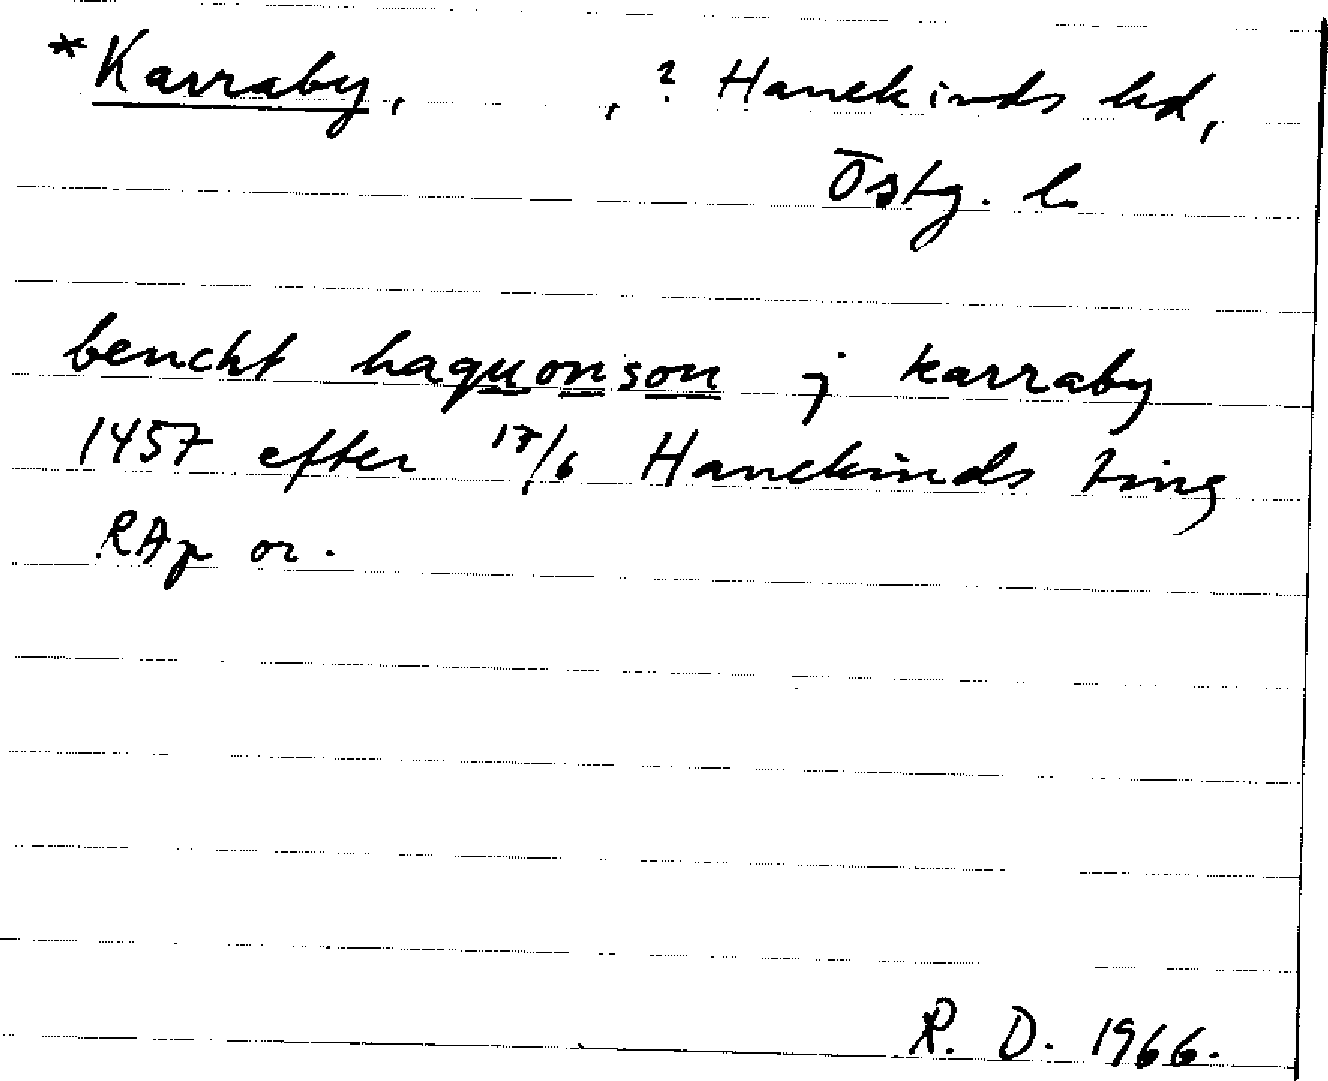 *Karraby, , ? Hanekinds hd,
Östg. l.
bencht haquonson j karraby
1457 efter 17/6 Hanekinds ting
RAp or.
R. D. 1966.